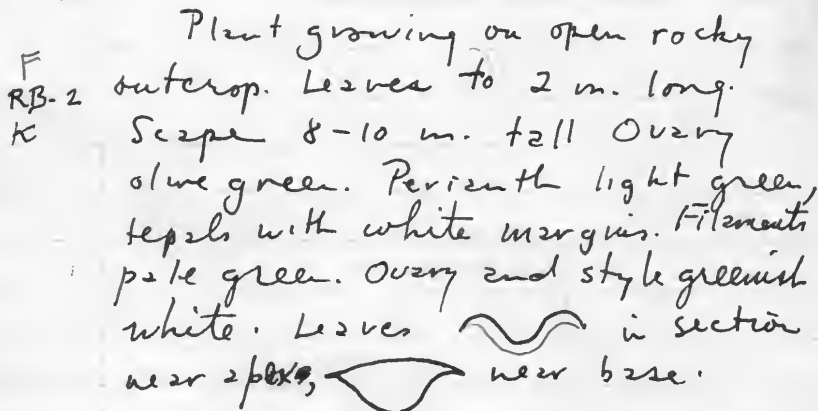 Plant growing on open rocky
F
RB-2 outcrop. Leaves to 2 m. long.
K Scape 8-10 m. tall Ovary
olive green. Perianth light green,
tepals with white margins. Filaments
pale green. Ovary and style greenish
white. Leaves in section
near apex, near base.